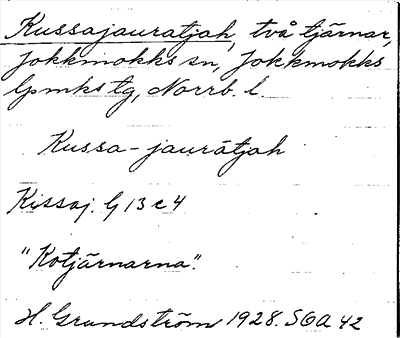 Kussajauratjah, två tjärnar,
Jokkmokks sn, Jokkmokks
lpmkstg, Norrb. l.
Kussa-jaurātjah
Kissaj. G 13 c 4
"Kotjärnarna".
H. Grundström 1928. SOA 42